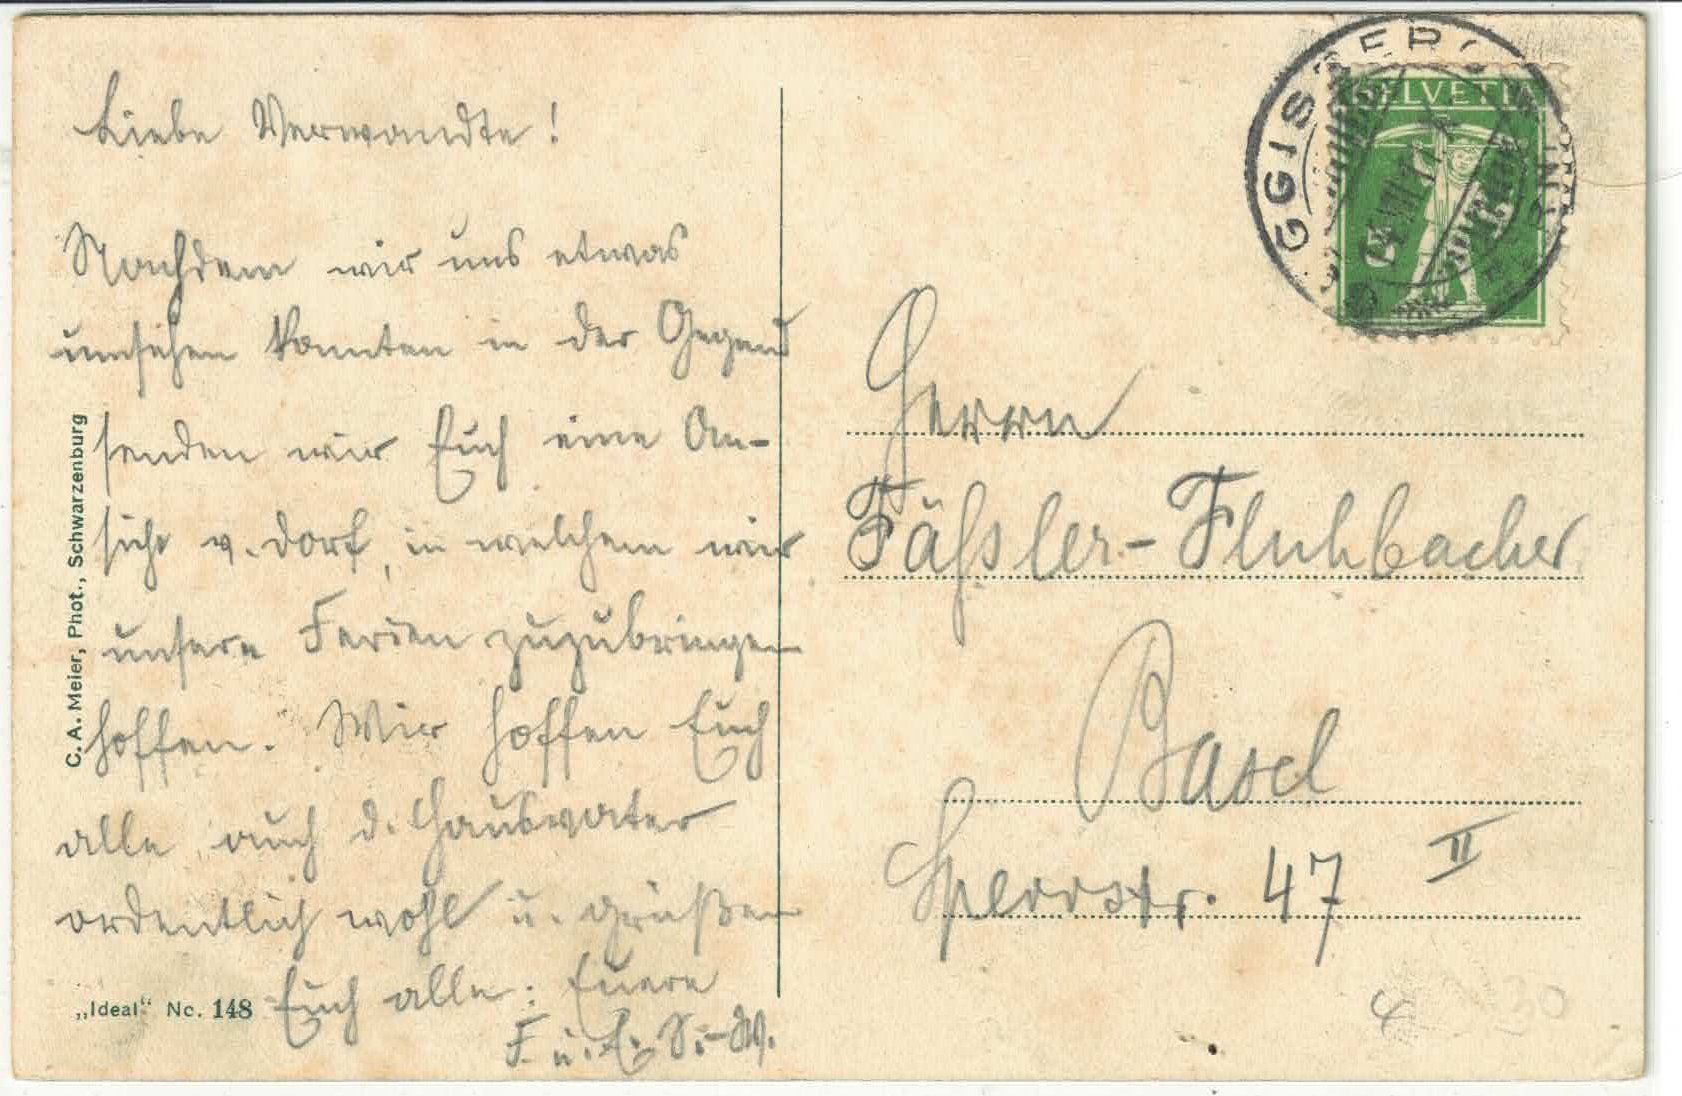 Liebe Verwandte!
Nachdem wir uns etwas
umsehen konnten in der Gegend
senden wir Euch eine An-
sicht v. Dorf, in welchem wir
unsere Ferien zuzubringen
hoffen. Wir hoffen Euch
alle auch d. Hausvater
ordentlich wohl u. grüßen
Euch alle: Euere
F. u. E. S.-W.
C. A. Meier, Phot., Schwarzenburg
„Ideal“ No. 148
HELVETIA
GGISBERG
Herrn
Fässler-Fluhbacher
Basel
47 II